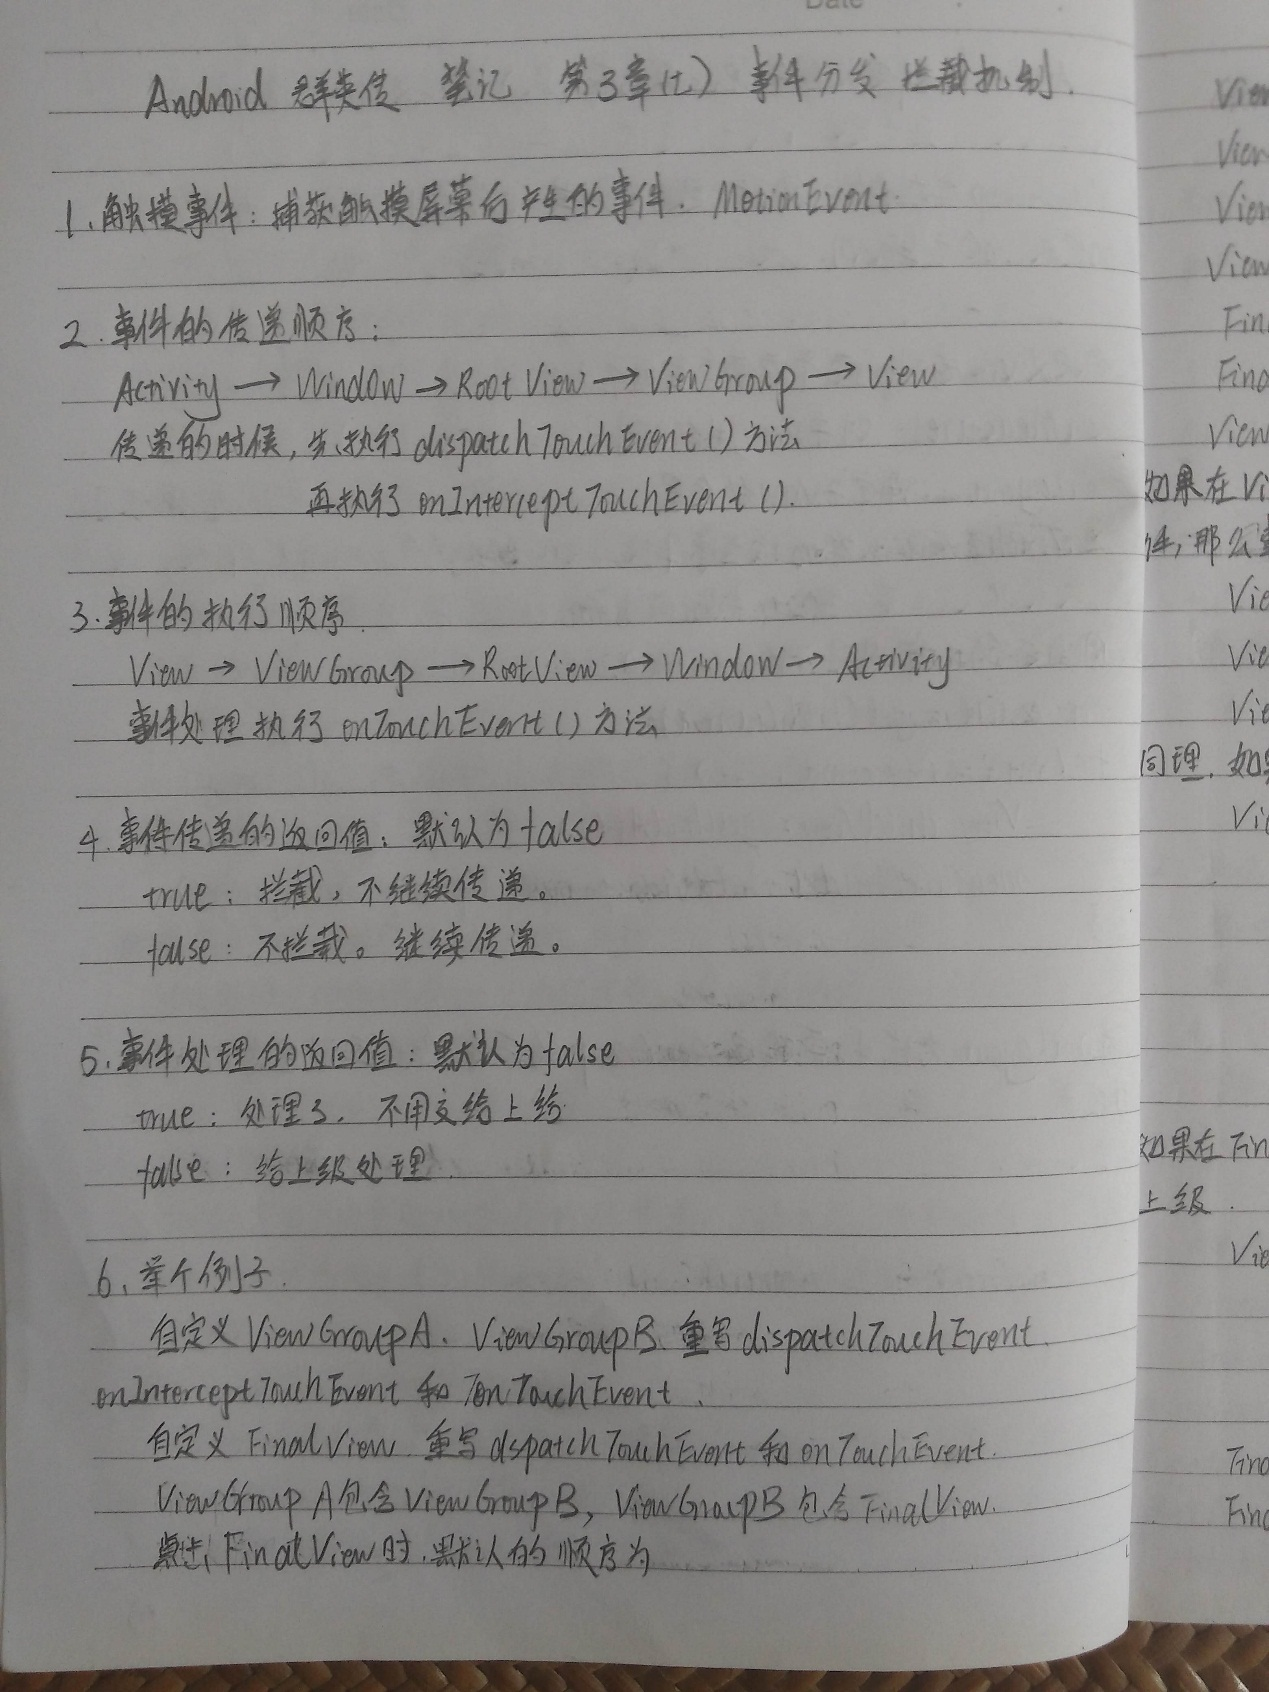 Date
Android 群英传 笔记 第3章(七) 事件分发 拦截机制.
1.触摸事件:捕获触摸屏幕后产生的事件. MotionEvent.
2.事件的传递顺序:
Activity → Window → Root View → ViewGroup → View
传递的时候,先执行dispatchTouchEvent()方法
再执行 onInterceptTouchEvent().
3.事件的执行顺序.
View → ViewGroup → RootView → Window → Activity
事件处理执行onTouchEvent()方法
4.事件传递的返回值:默认为false
true:拦截,不继续传递。
false:不拦截。继续传递。
5.事件处理的返回值:默认为false
true:处理了.不用交给上给.
false:给上级处理.
6.举个例子.
自定义ViewGroupA.ViewGroupB.重写dispatchTouchEvent.
onInterceptTouchEvent 和 onTouchEvent.
自定义 FinalView 重写dispatchTouchEvent和onTouchEvent.
ViewGroup A包含ViewGroupB, ViewGroupB包含FinalView.
点击FinalView时.默认的顺序为
View
View
View
View
Fin
Fina
View
如果在Vi
件,那么
Vie
Vie
Vie
同理.如
Vie
如果在Fin
上级.
Vie
Fina
Fina